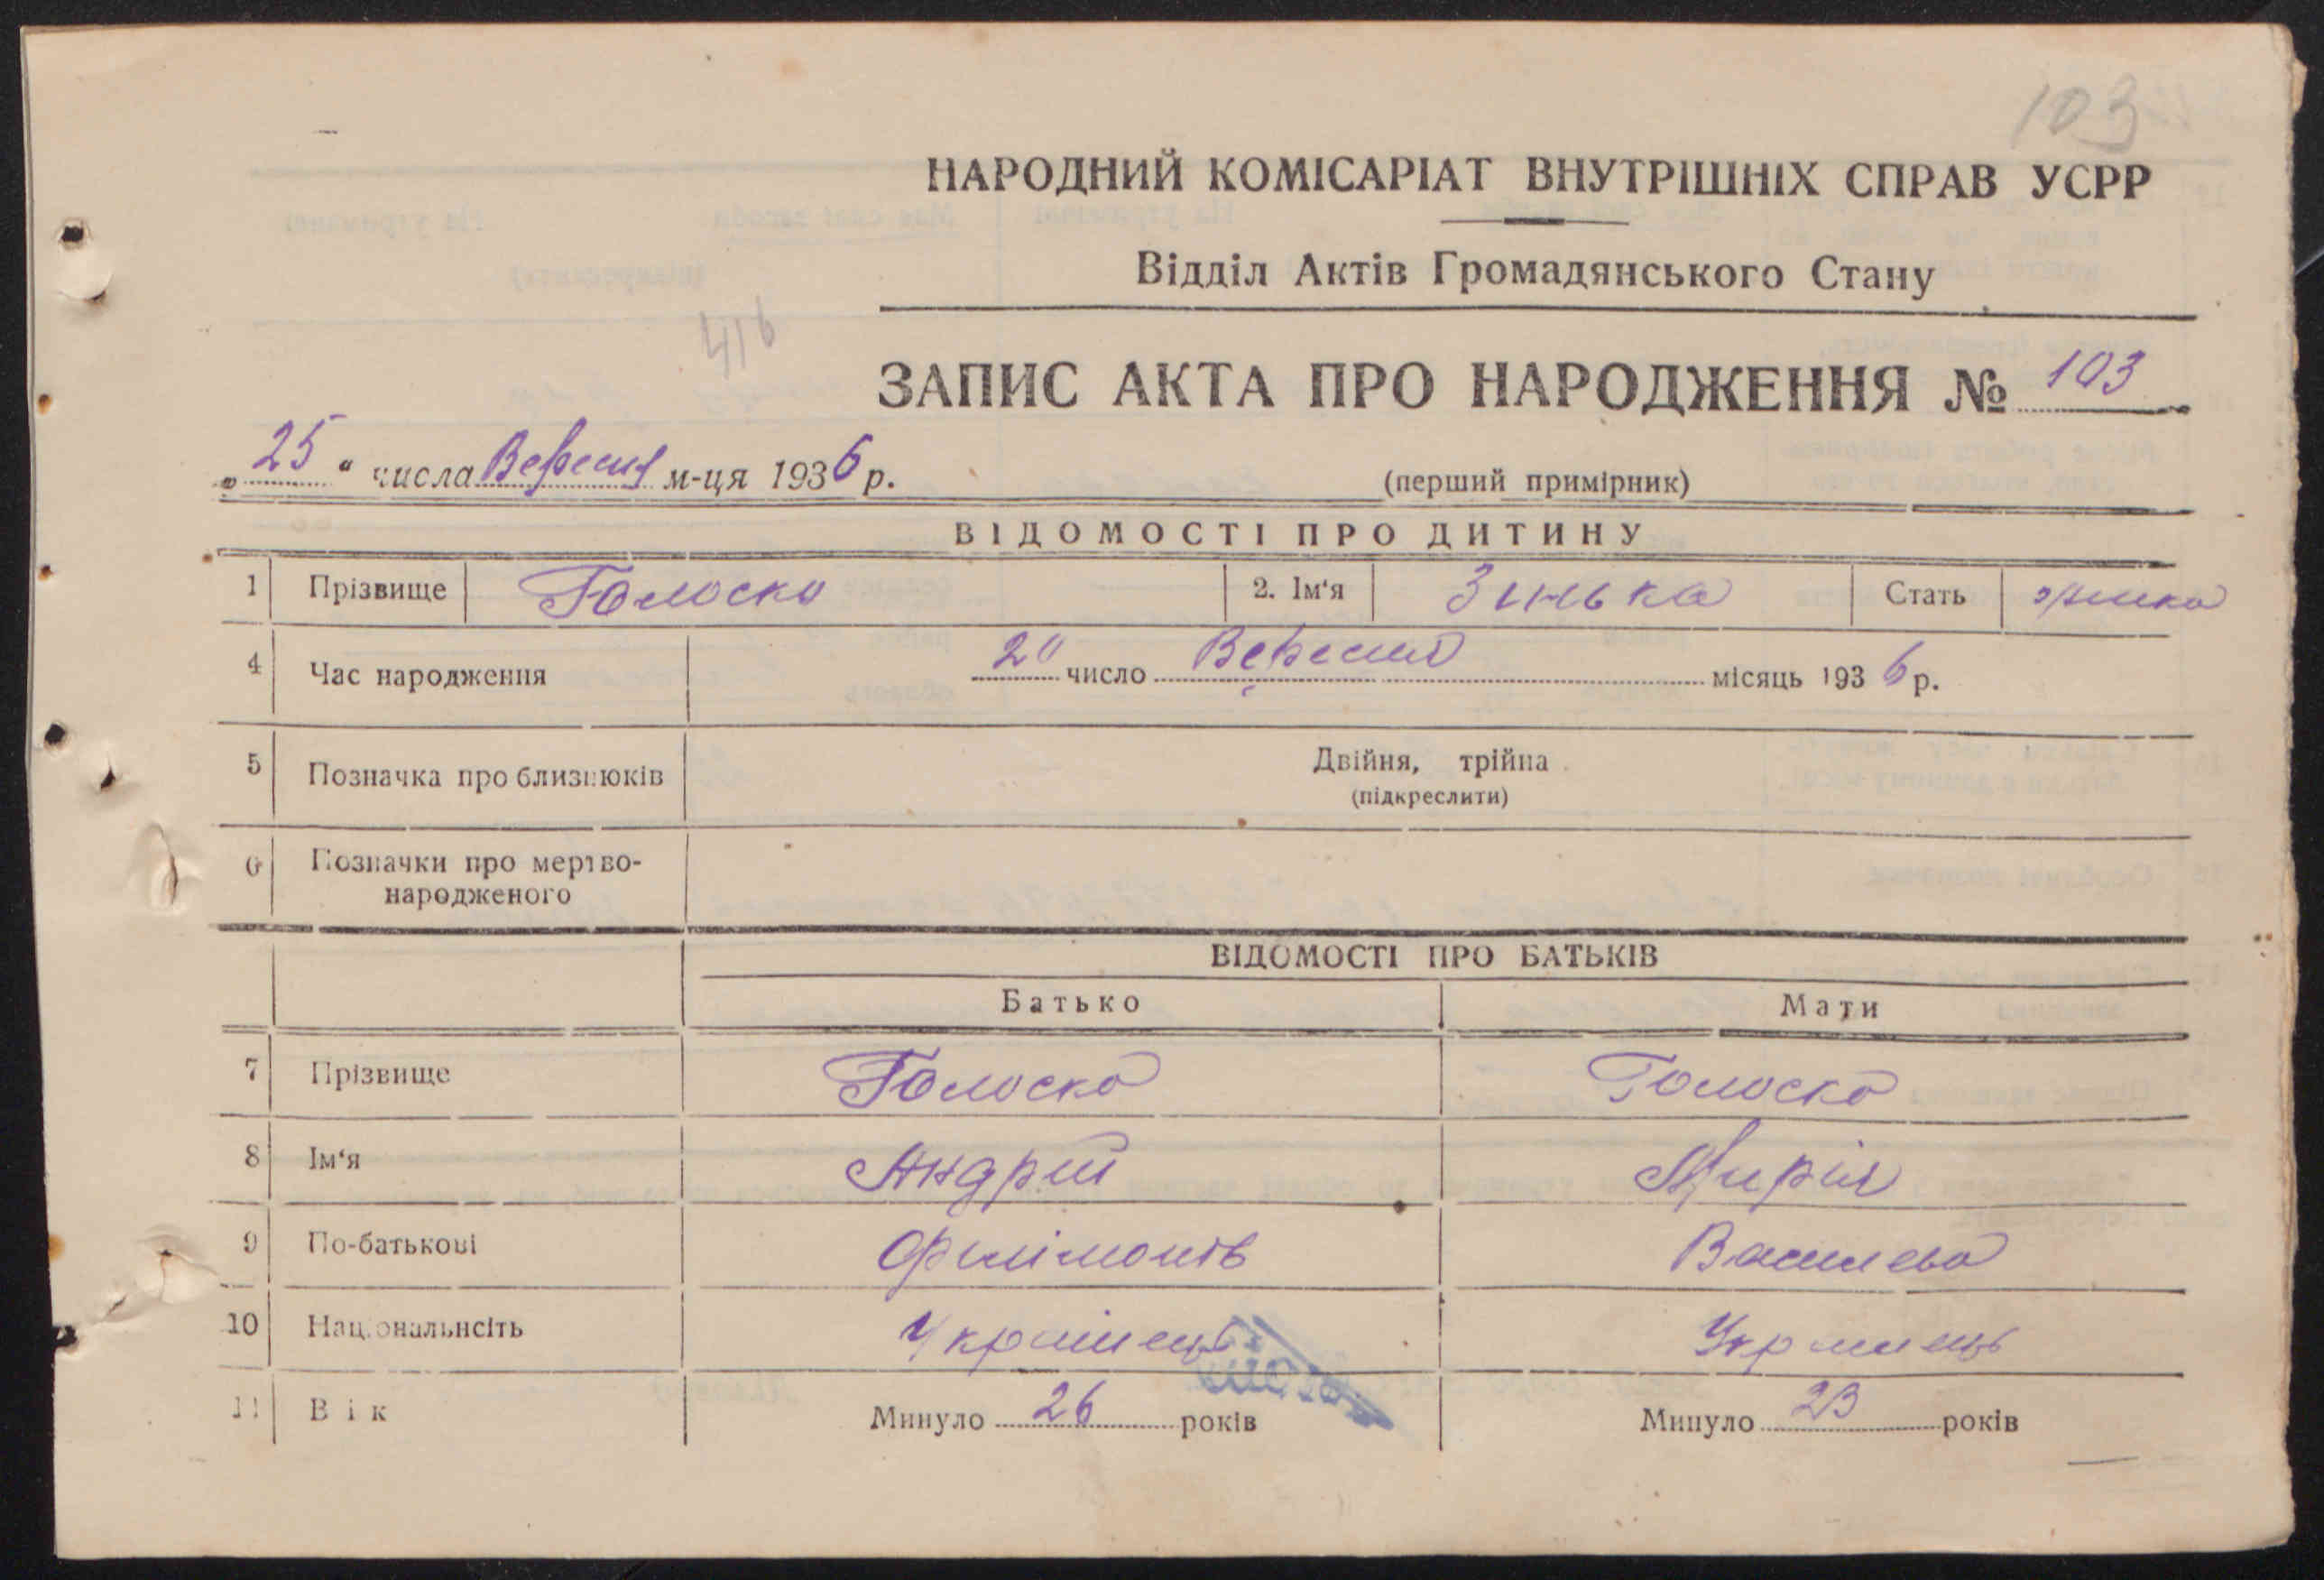 103
НАРОДНИЙ КОМІСАРІАТ ВНУТРІШНІХ СПРАВ УСРР
Відділ Актів Громадянського Стану
416
ЗАПИС АКТА ПРО НАРОДЖЕННЯ № 103
„ 25 “ числа Вересня м-ця 1936 р.
(перший примірник)
ВІДОМОСТІ ПРО ДИТИНУ
1 Прізвище Голоско 2. Ім‘я Зинька Стать жінка
4 Час народження 20 число Вересня місяць 1936 р.
5 Позначка про близнюків Двійня, трійна
(підкреслити)
6 Позначки про мертво-
народженого
ВІДОМОСТІ ПРО БАТЬКІВ
Батько Мати
7 Прізвище Голоско Голоско
8 Ім‘я Андрій Марія
9 По-батькові Филімонів Василева
10 Національнсіть Україньець Україньець
11 Вік Минуло 26 років Минуло 23 років